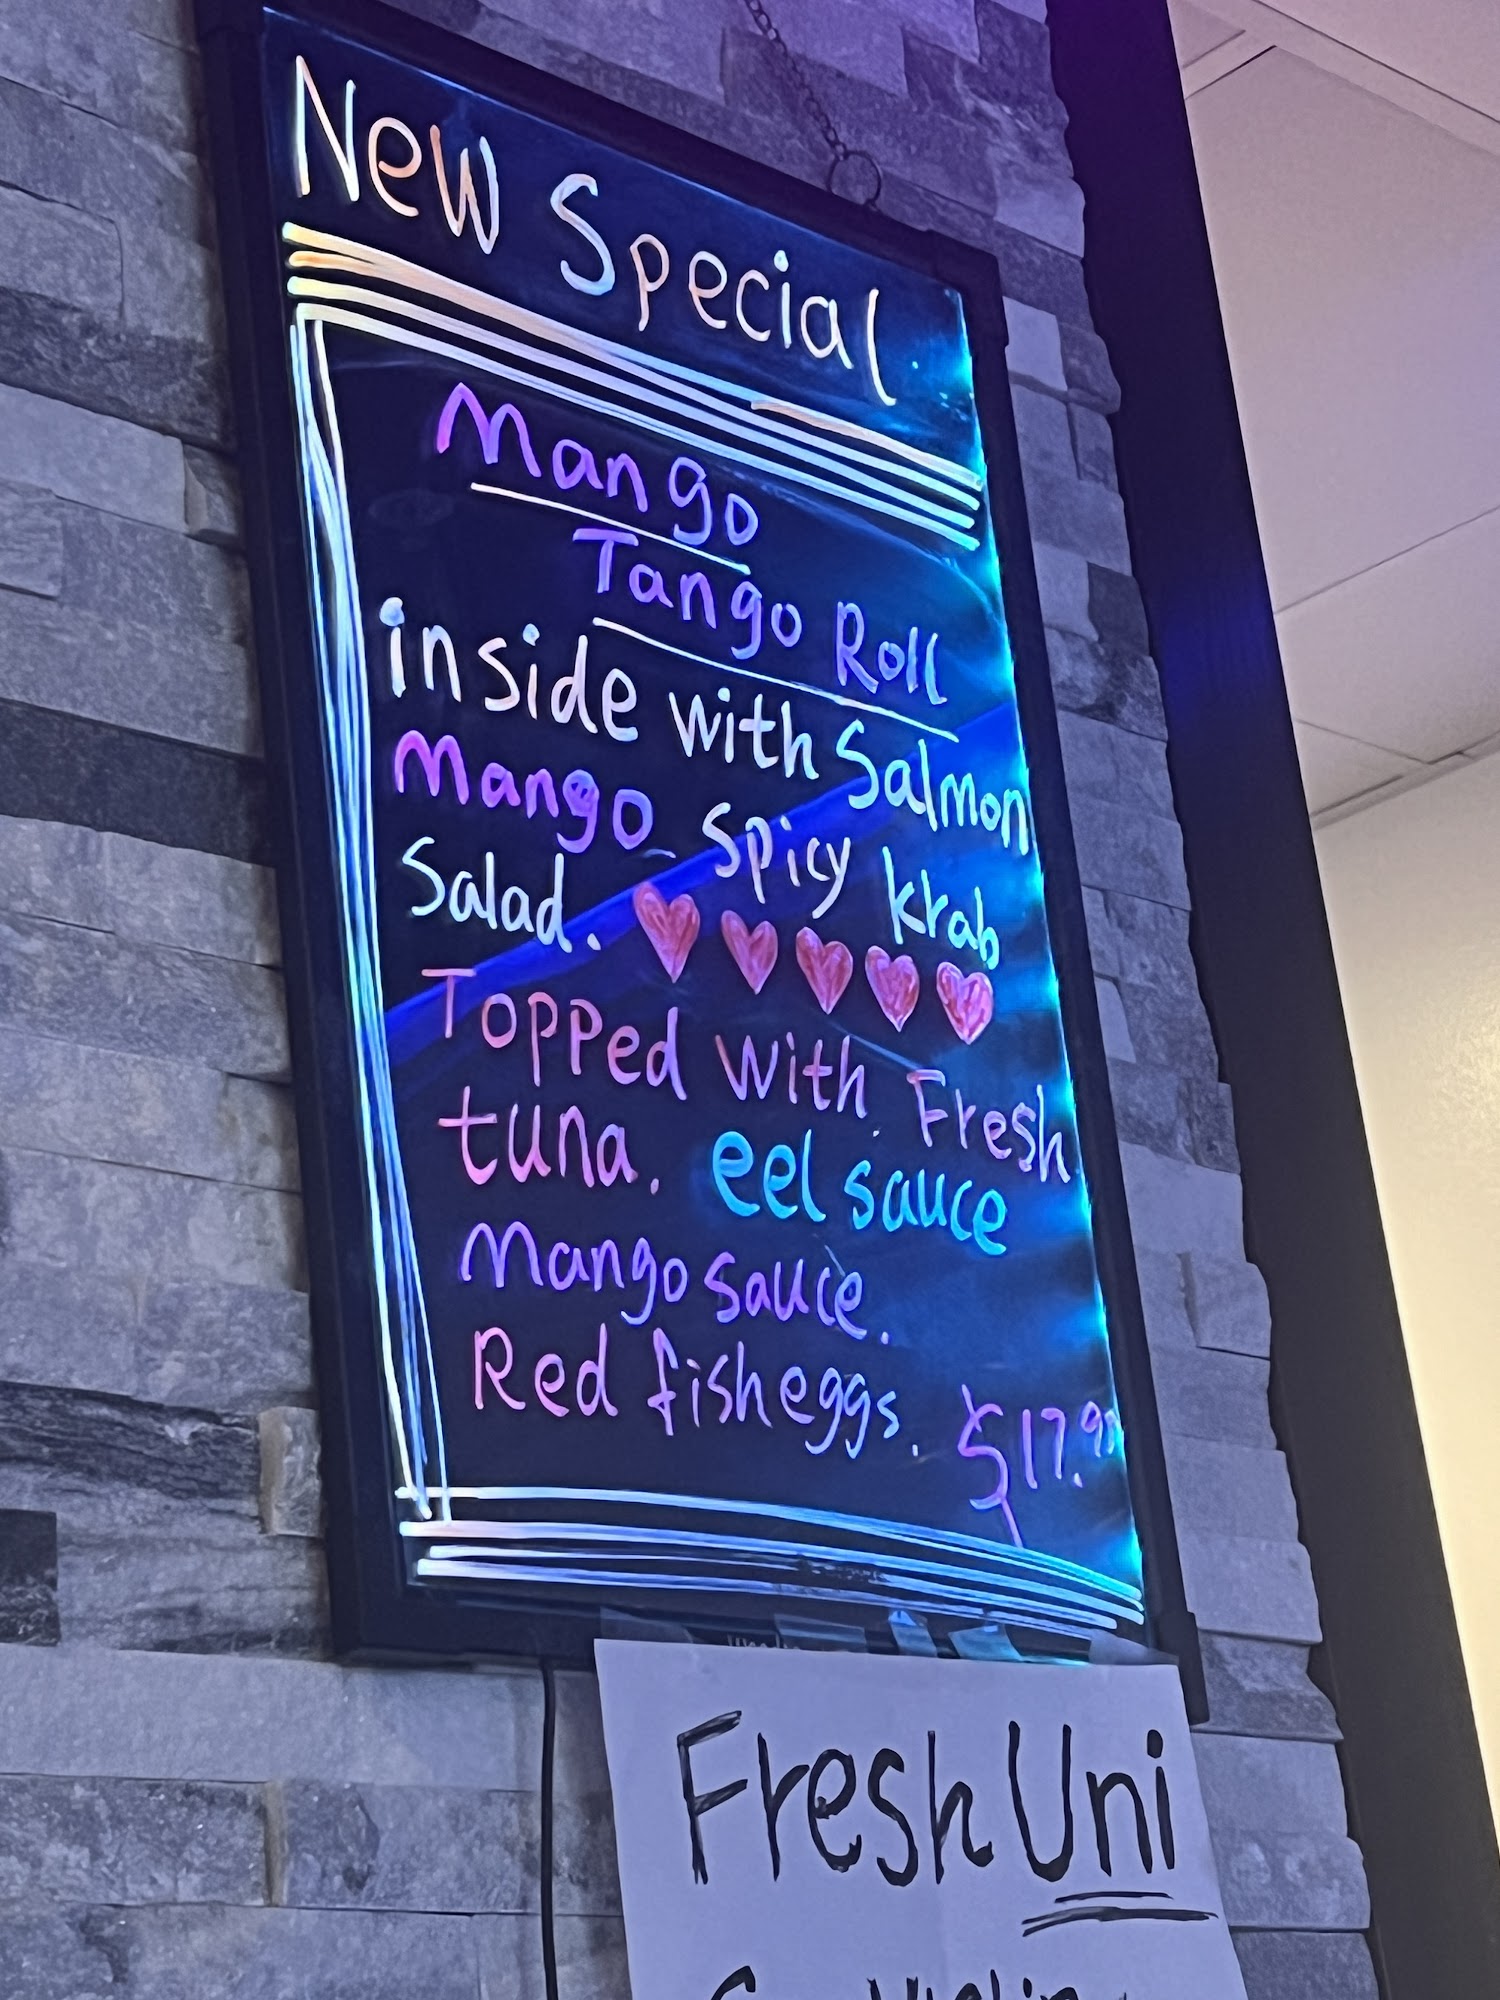 New Special
Mango
Tango Roll
inside with Salmon
Mango spicy krab
Salad.
Topped with Fresh
tuna. eel sauce
Mango sauce.
Red fish eggs.
$17.9
Fresh Uni